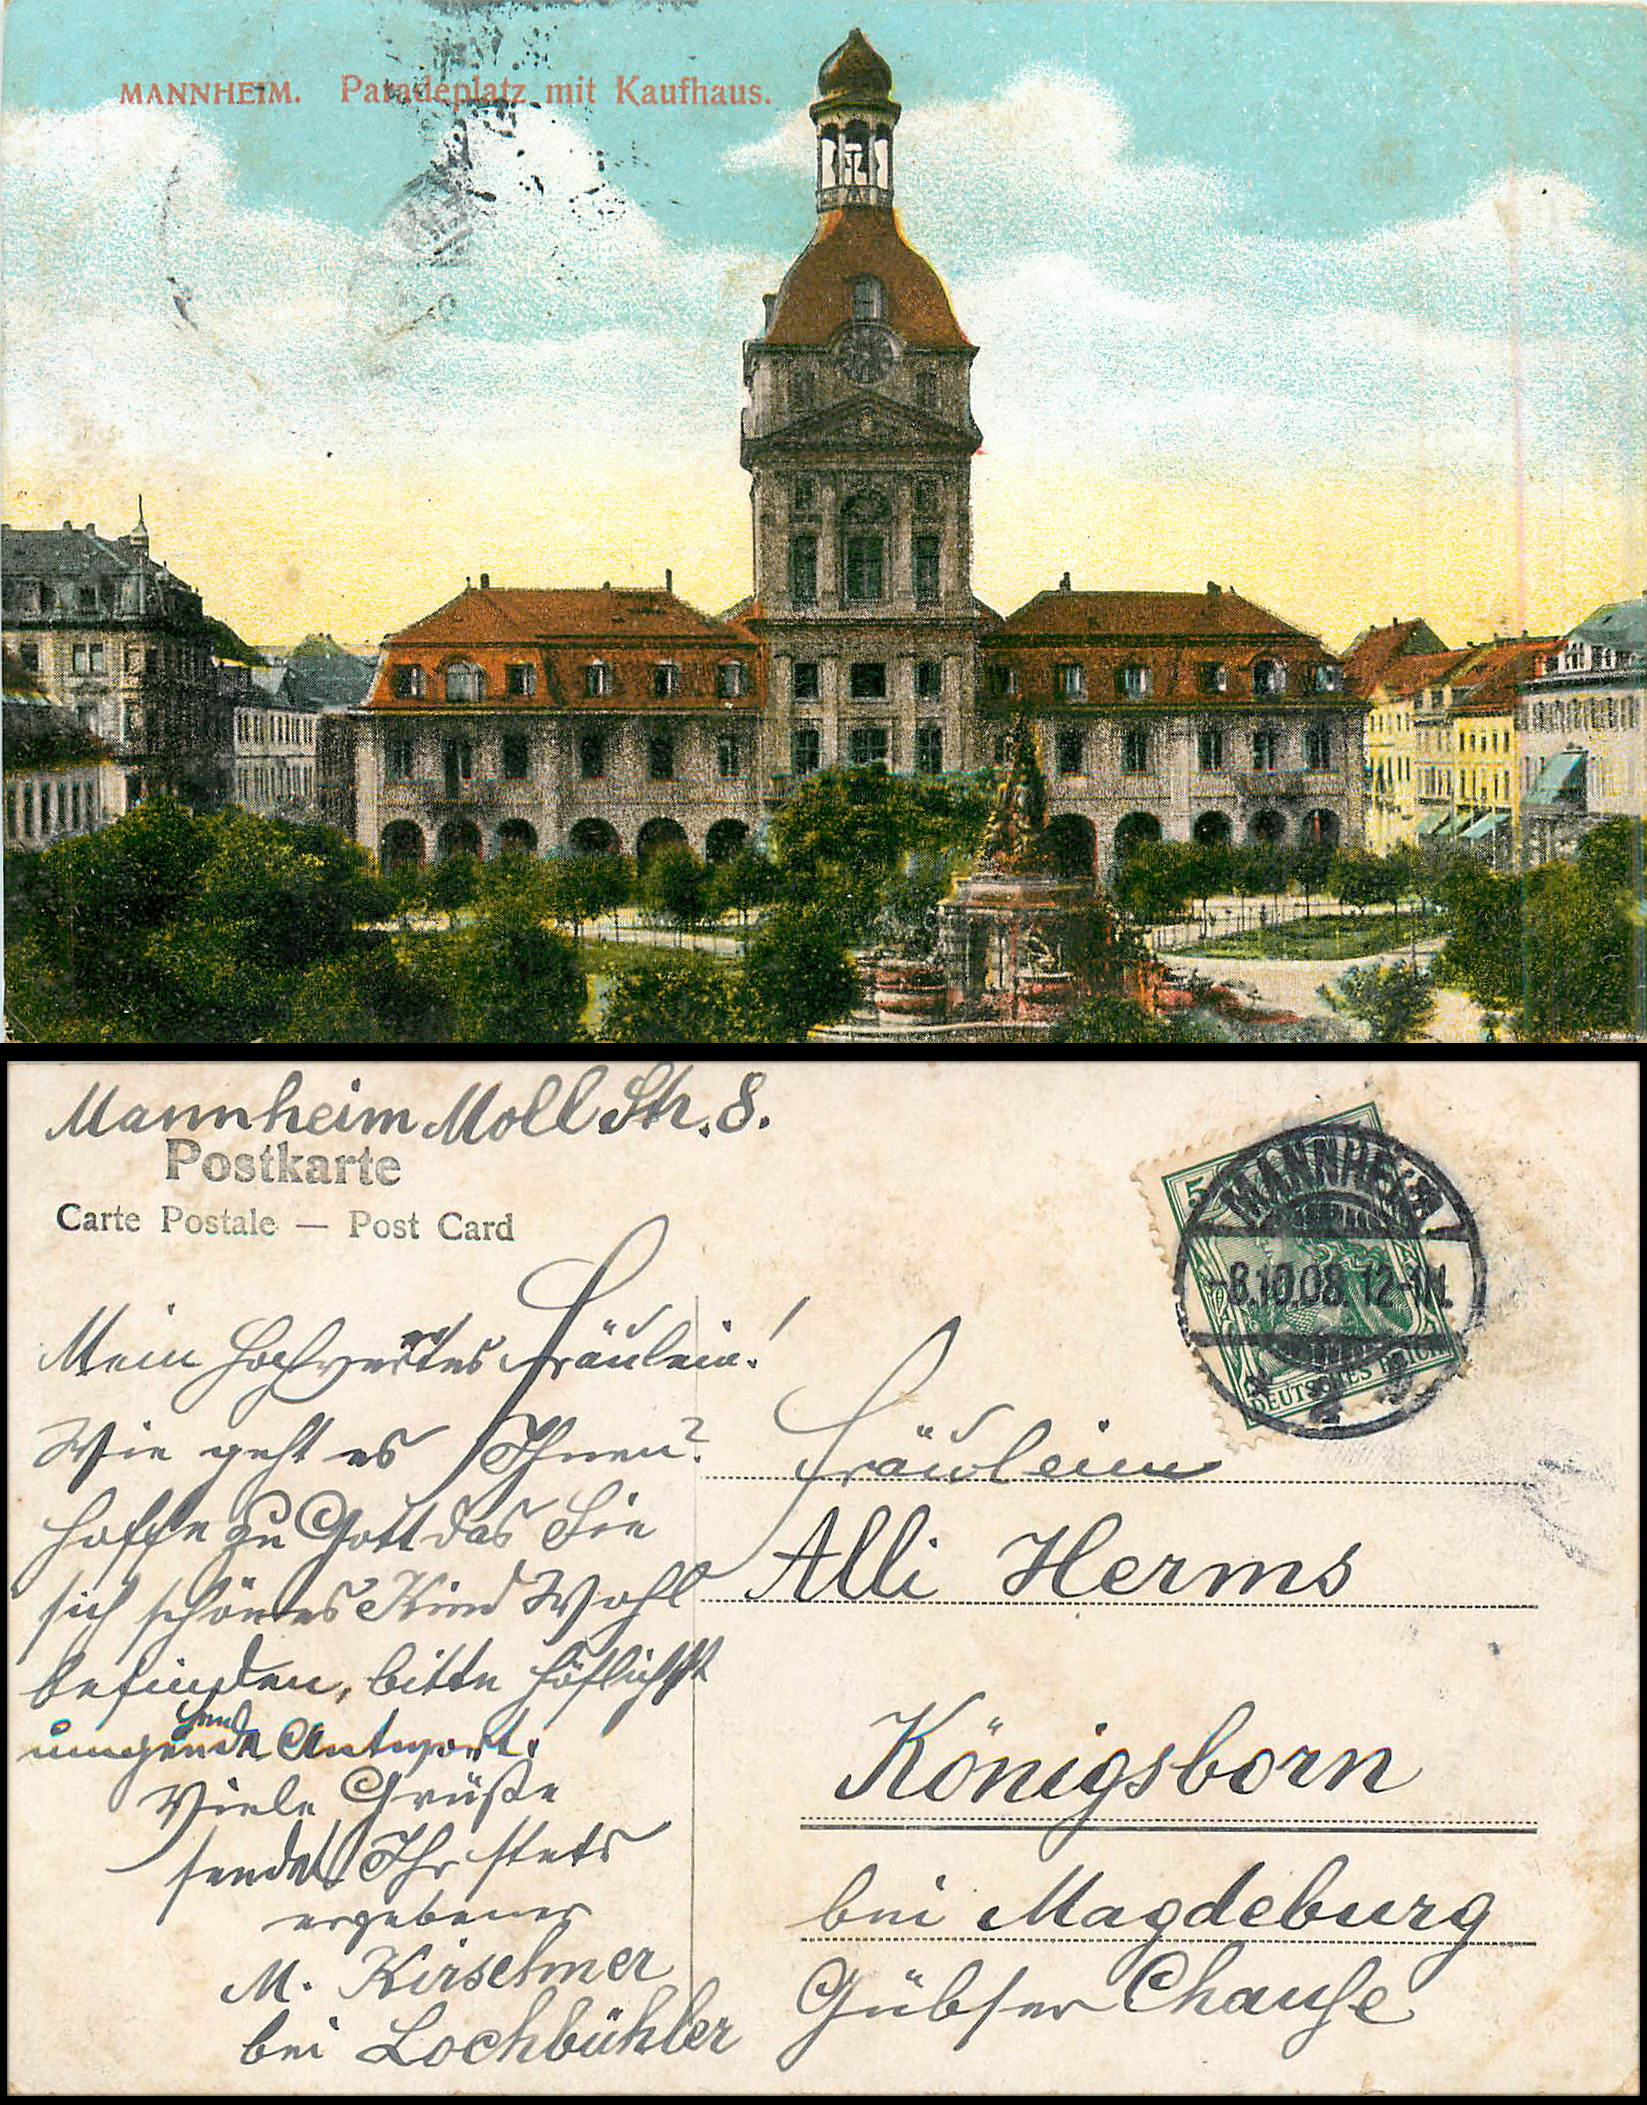 MANNHEIM. Paradeplatz mit Kaufhaus.
Mannheim Moll Str. 8.
Postkarte
Carte Postale — Post Card
Mein hochwertes Fräulein!
Wie geht es Ihnen?
hoffe zu Gott das Sie
sich schönes Kind Wohl
befinden, bitte höflichst
umgehende Antwort.
Viele Grüße
sendet Ihr stets
ergebener
M. Kirschner
bei Lochbühler
5
MANNHEIM
-8.10.08. 12-1N.
DEUTSCHES REICH
Fräulein
Alli Herms
Königsborn
bei Magdeburg
Gübser Chauße